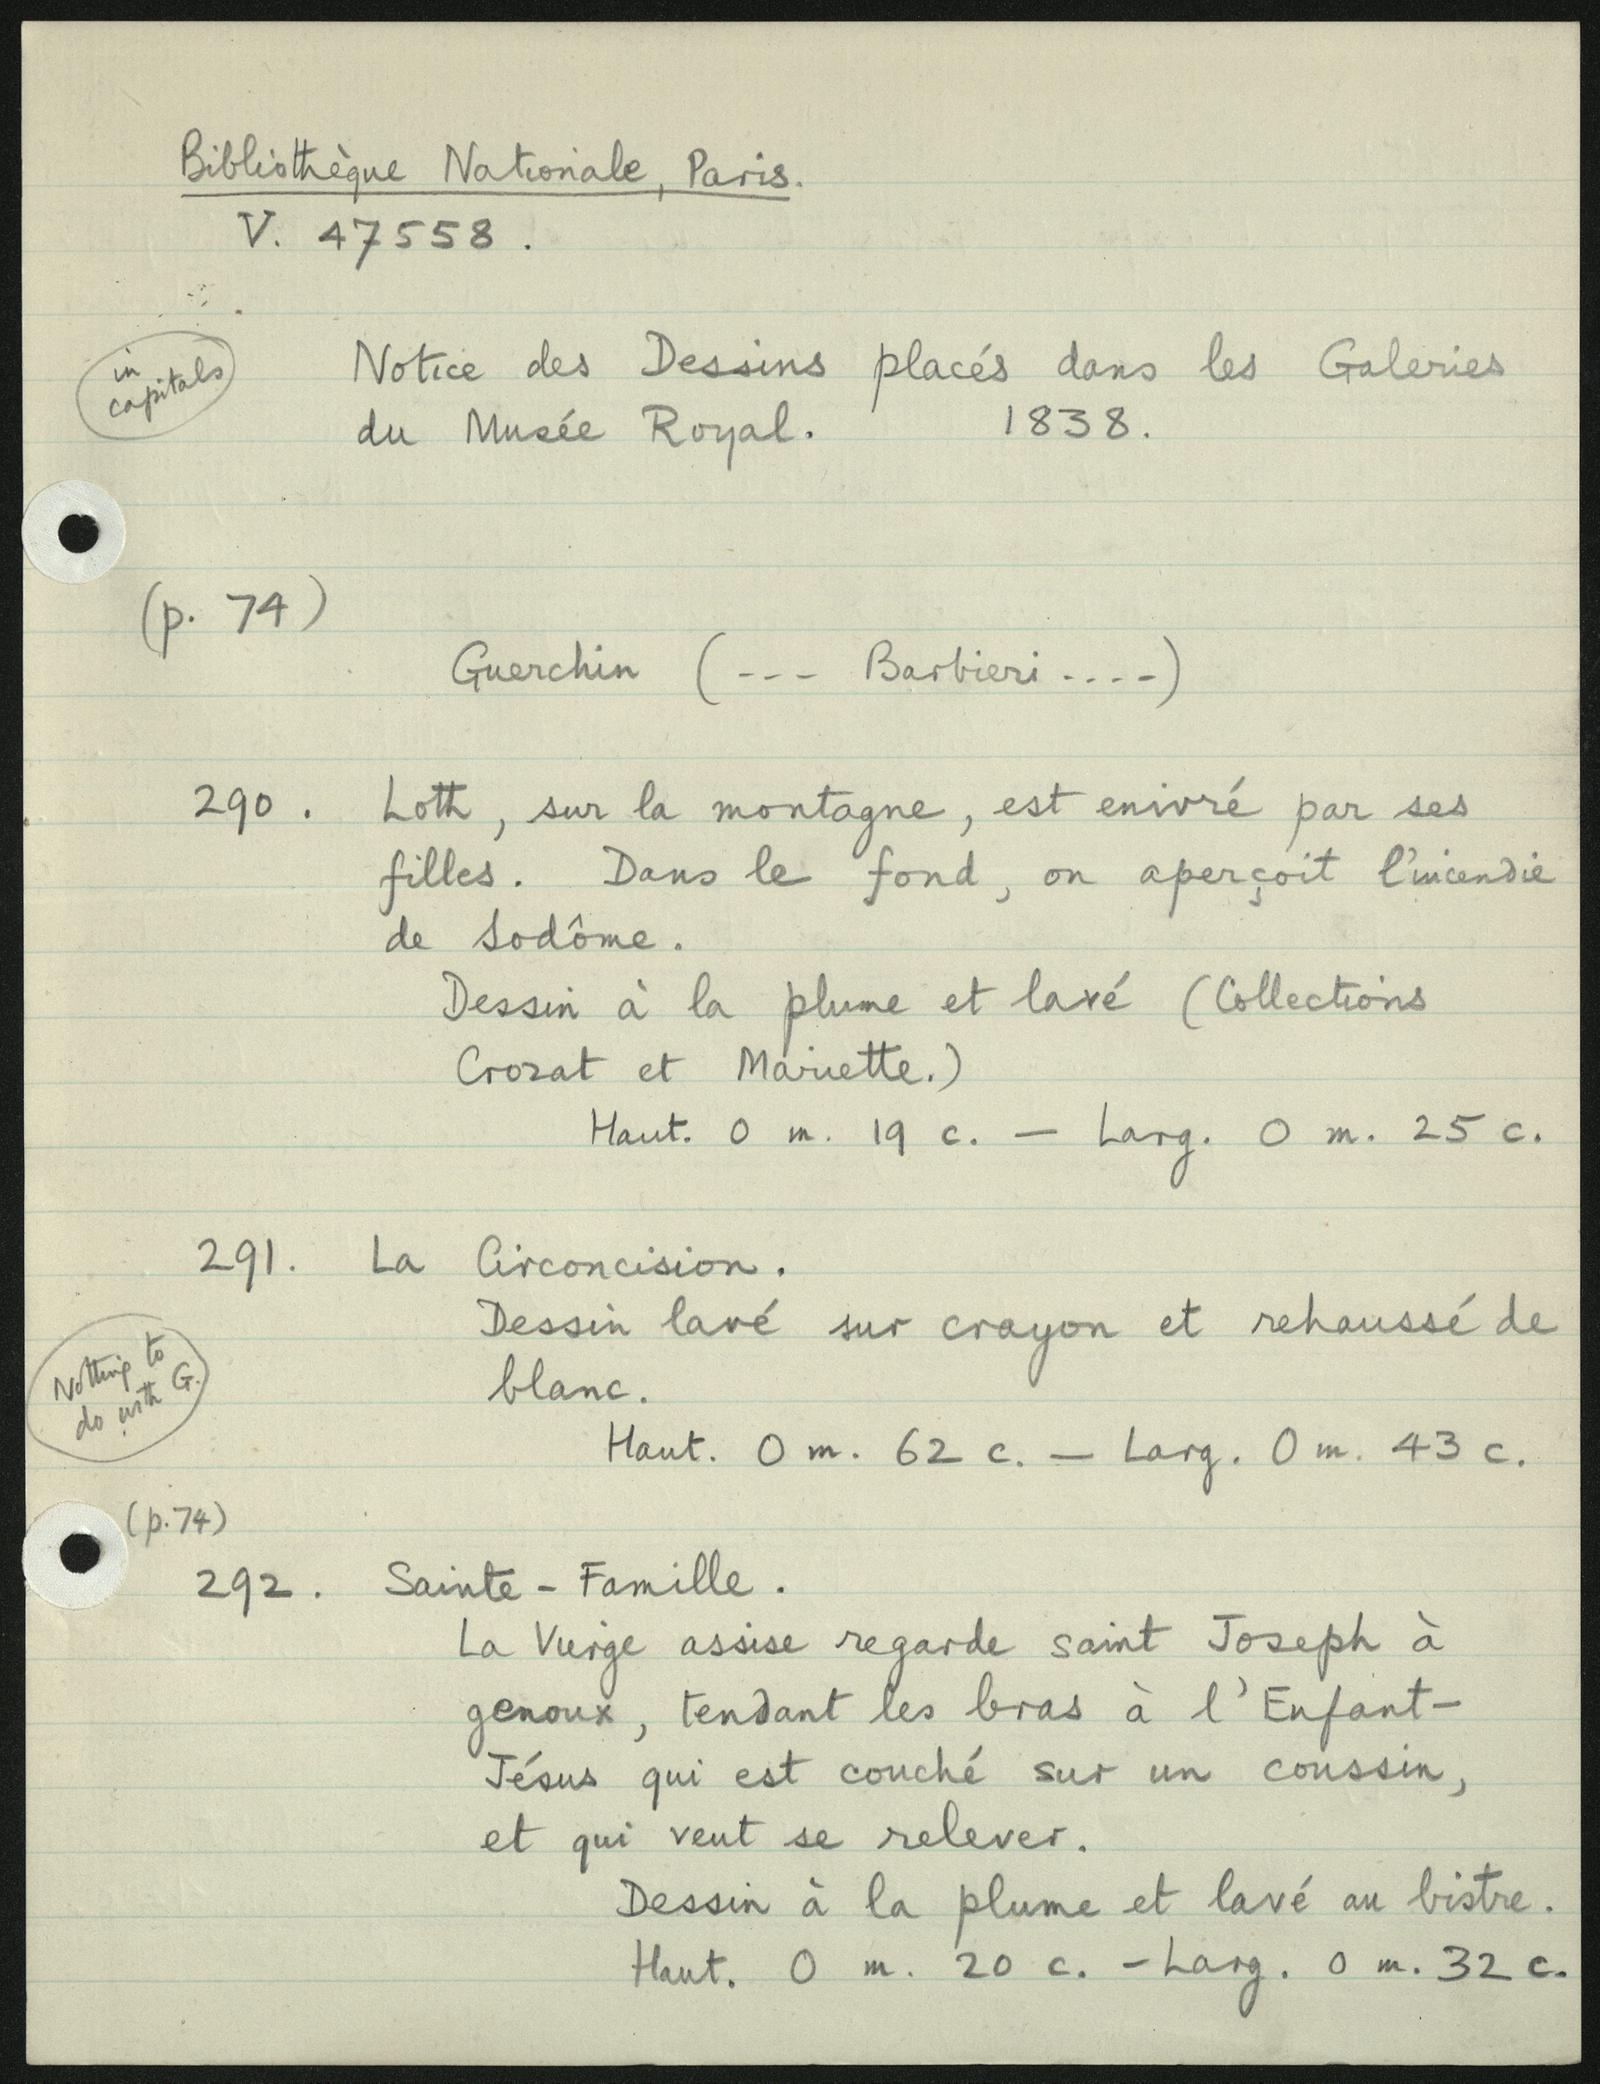 Bibliothèque Nationale, Paris.
V. 47558.
in
capitals
Notice des Dessins placés dans les Galeries
du Musée Royal. 1838.
(p. 74)
Guerchin (--- Barbieri ....-)
290. Loth, sur la montagne, est enivré par ses
filles. Dans le fond, on aperçoit l'incendie
de Sodôme.
Dessin à la plume et lavé (Collections
Crozat et Mariette.)
Haut. 0 m. 19 c. — Larg. 0 m. 25 c.
291. La Circoncision.
Dessin lavé sur crayon et rehaussé de
blanc.
Nothing to
do with G.
Haut. 0 m. 62 c. — Larg. 0 m. 43 c.
(p. 74)
292. Sainte-Famille.
La Vierge assise regarde saint Joseph à
genoux, tendant les bras à l'Enfant-
Jésus qui est couché sur un coussin,
et qui veut se relever.
Dessin à la plume et lavé au bistre.
Haut. 0 m. 20 c. - Larg. 0 m. 32 c.